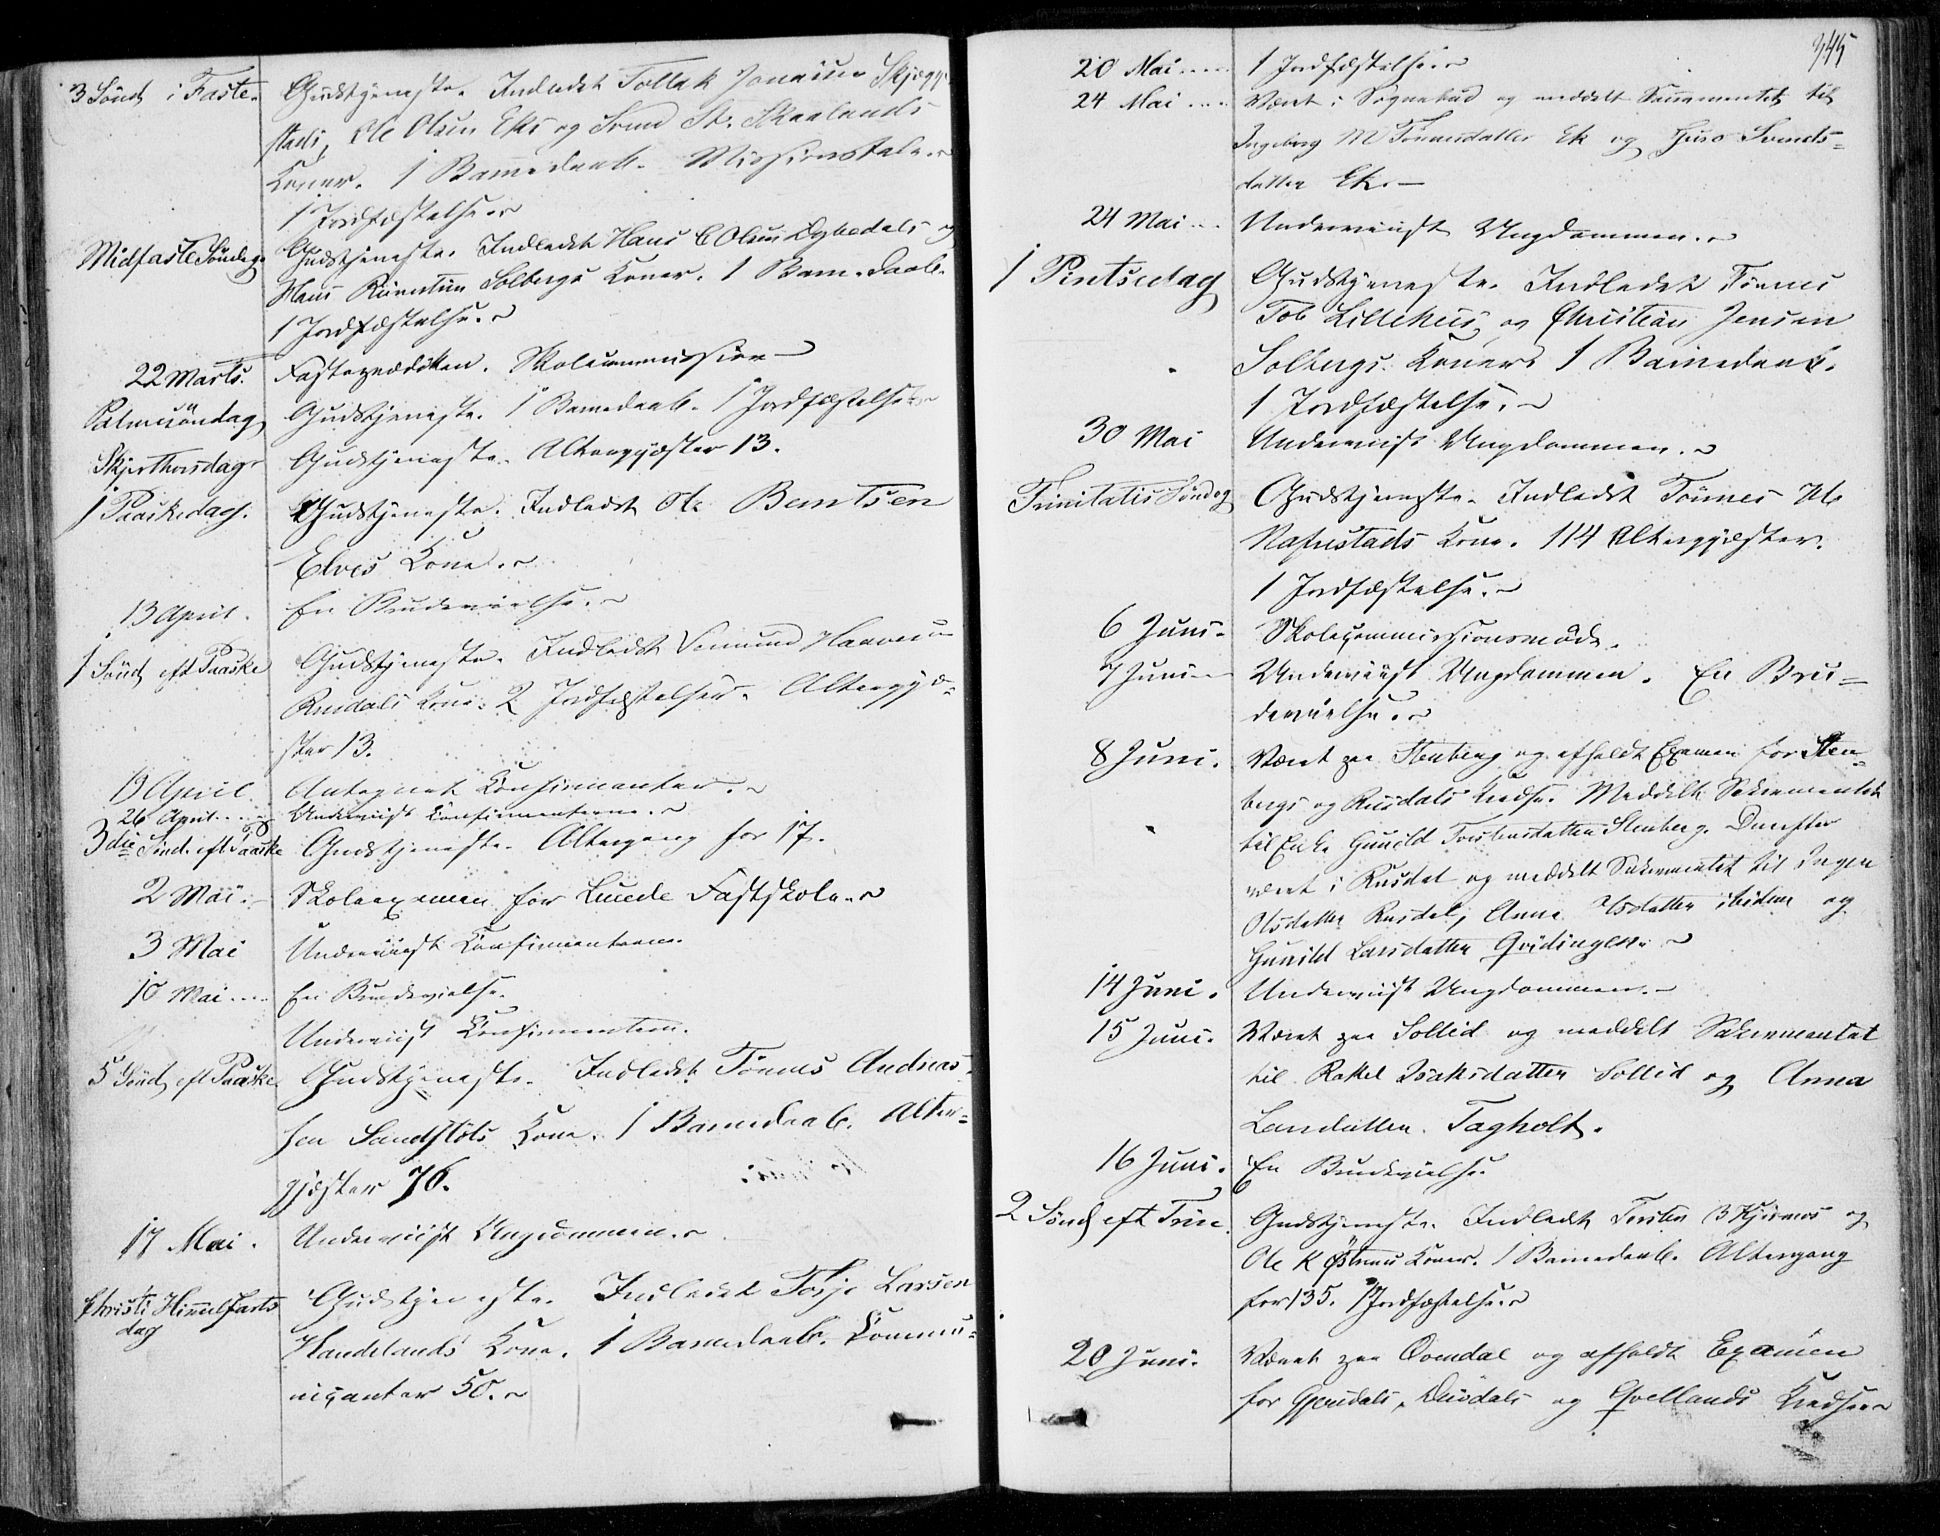 3 Sönd i Faste. Gudstjeneste. Indledet Tollak Jonassen Skjegge-
stads, Ole Olsen Eks og Svend St. Skaalands
Koner. 1 Barnedaab. Missionstale.
1 Jordfæstelse.
Midfaste Söndag. Gudstjeneste. Indledet Hans C Olsen Dybedals og
Hans Solbergs Koner. 1 Barnedaab.
1 Jordfæstelse.
22 Marts. Fasteprædiken. Skolecommission
Palmesöndag Gudstjeneste. 1 Barnedaab. 1 Jordfæstelse
Skjærthorsdag Gudstjeneste. Altergjæster 13.
1 Paaskedag. Gudstjeneste. Indledet Ole Berntsen
Elves Kone.
13 April. En Brudevielse.
1 Sönd eft Paaske Gudstjeneste. Indledet Haaversen
Rusdals Kone. 2 Jordfæstelser. Altergjæ-
ster 13.
19 April Antegnet Konfirmanter.
26 April.... Underviist Konfirmanterne.
3die Sönd. eft Paaske Gudstjeneste. Altergang for 17.
2 Mai. Skoleexamen for Lunde Fastskole.
3 Mai Underviist Konfirmanterne.
10 Mai.... En Brudevielse.
Underviist Konfirmanterne.
5 Sönd eft Paaske Gudstjeneste. Indledet Tönnes Andreas-
sen Sandstöls Kone. 1 Barnedaab. Alter-
gjæster 76.
17 Mai. Underviist Ungdommen.
Christi Himmelfarts
dag Gudstjeneste. Indledet Tosje Larsen
Haudelands Kone. 1 Barnedaab. Commu-
nicanter 50.
345
20 Mai.... 1 Jordfæstelse.
24 Mai.... Været i Sognebud og meddelt Sacramentet til
Ingeborg M Tönnesdatter Ek og Guro Svends-
datter Ek.
24 Mai... Underviist Ungdommen.
1 Pintsedag Gudstjeneste. Indledet Tönnes
Tob Lillehuus og Christian Jensen
Solbergs Koner. 1 Barnedaab.
1 Jordfæstelse.
30 Mai Underviist Ungdommen.
Trinitatis Söndag Gudstjeneste. Indledet Tönnes
Refsnestads Kone. 114 Altergjæster.
1 Jordfæstelse.
6 Juni. Skolecommissionsmøde.
7 Juni Underviist Ungdommen. En Bru-
devielse.
8 Juni. Været paa Stenberg og afholdt Examen for Sten-
bergs og Rusdals Kredse. Meddelt Sakramentet
til Enke Gunild Torstensdatter Stenberg. Derefter
været i Rusdal og meddelt Sakramentet til Inger
Olsdatter Rusdal, Anna Olsdatter ibidem og
Gunild Larsdatter Gvidingen.
14 Juni. Underviist Ungdommen.
15 Juni. Været paa Sollid og meddelt Sakramentet
til Rakel Isaksdatter Sollid og Anna
Larsdatter Tagholt.
16 Juni. En Brudevielse.
2 Sönd eft Trin. Gudstjeneste. Indledet Torsten B Kjörmos og
Ole K Østrems Koner. 1 Barnedaab. Altergang
for 135. 1 Jordfæstelse.
20 Juni. Været paa Ovendal og afholdt Examen
for Gjersdals, Duvdals og Qvellands Kredse